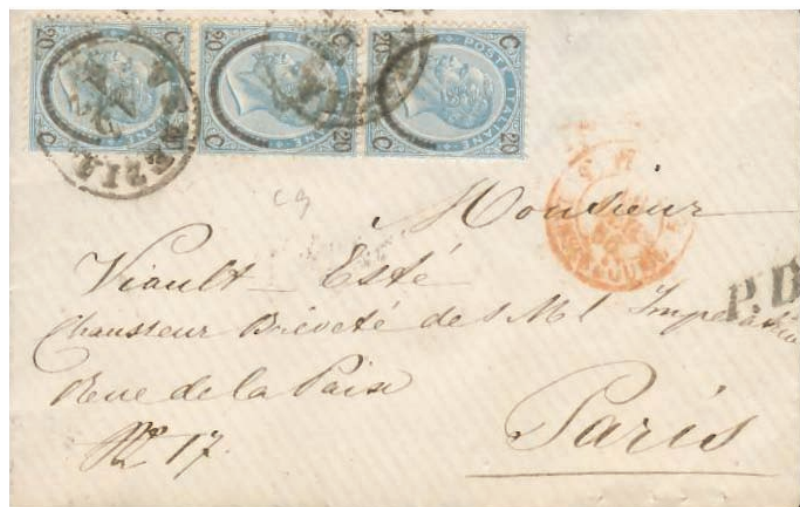 C 20 20 C
POSTE ITALIANE
C 20 20 C
POSTE ITALIANE
C 20 20 C
POSTE ITALIANE
VENEZIA
Monsieur
Viault - Esté
Chausseur Brèveté de S M l'Impératrice
P.D.
Rue de la Paix
N° 17.
Paris